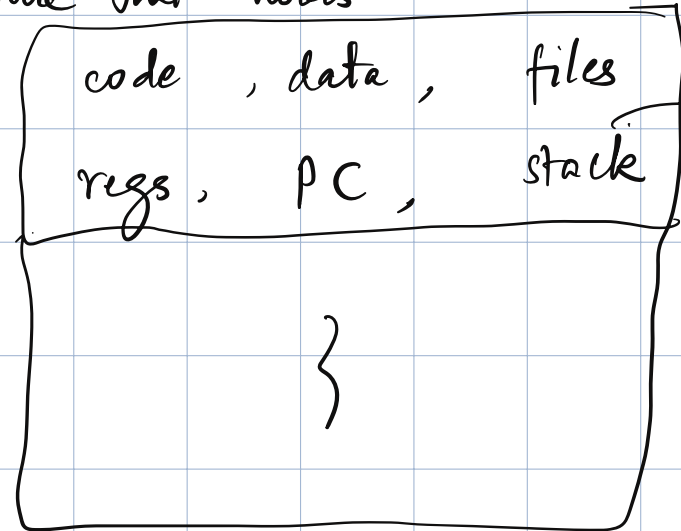 code , data , files
regs , PC , stack